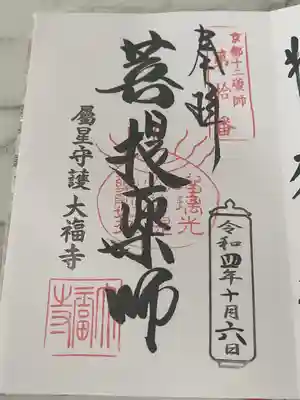 京都十二薬師
第拾番
奉拝
菩提薬師
屬星守護 大福寺
令和四年十月六日
瑠璃光
大福寺